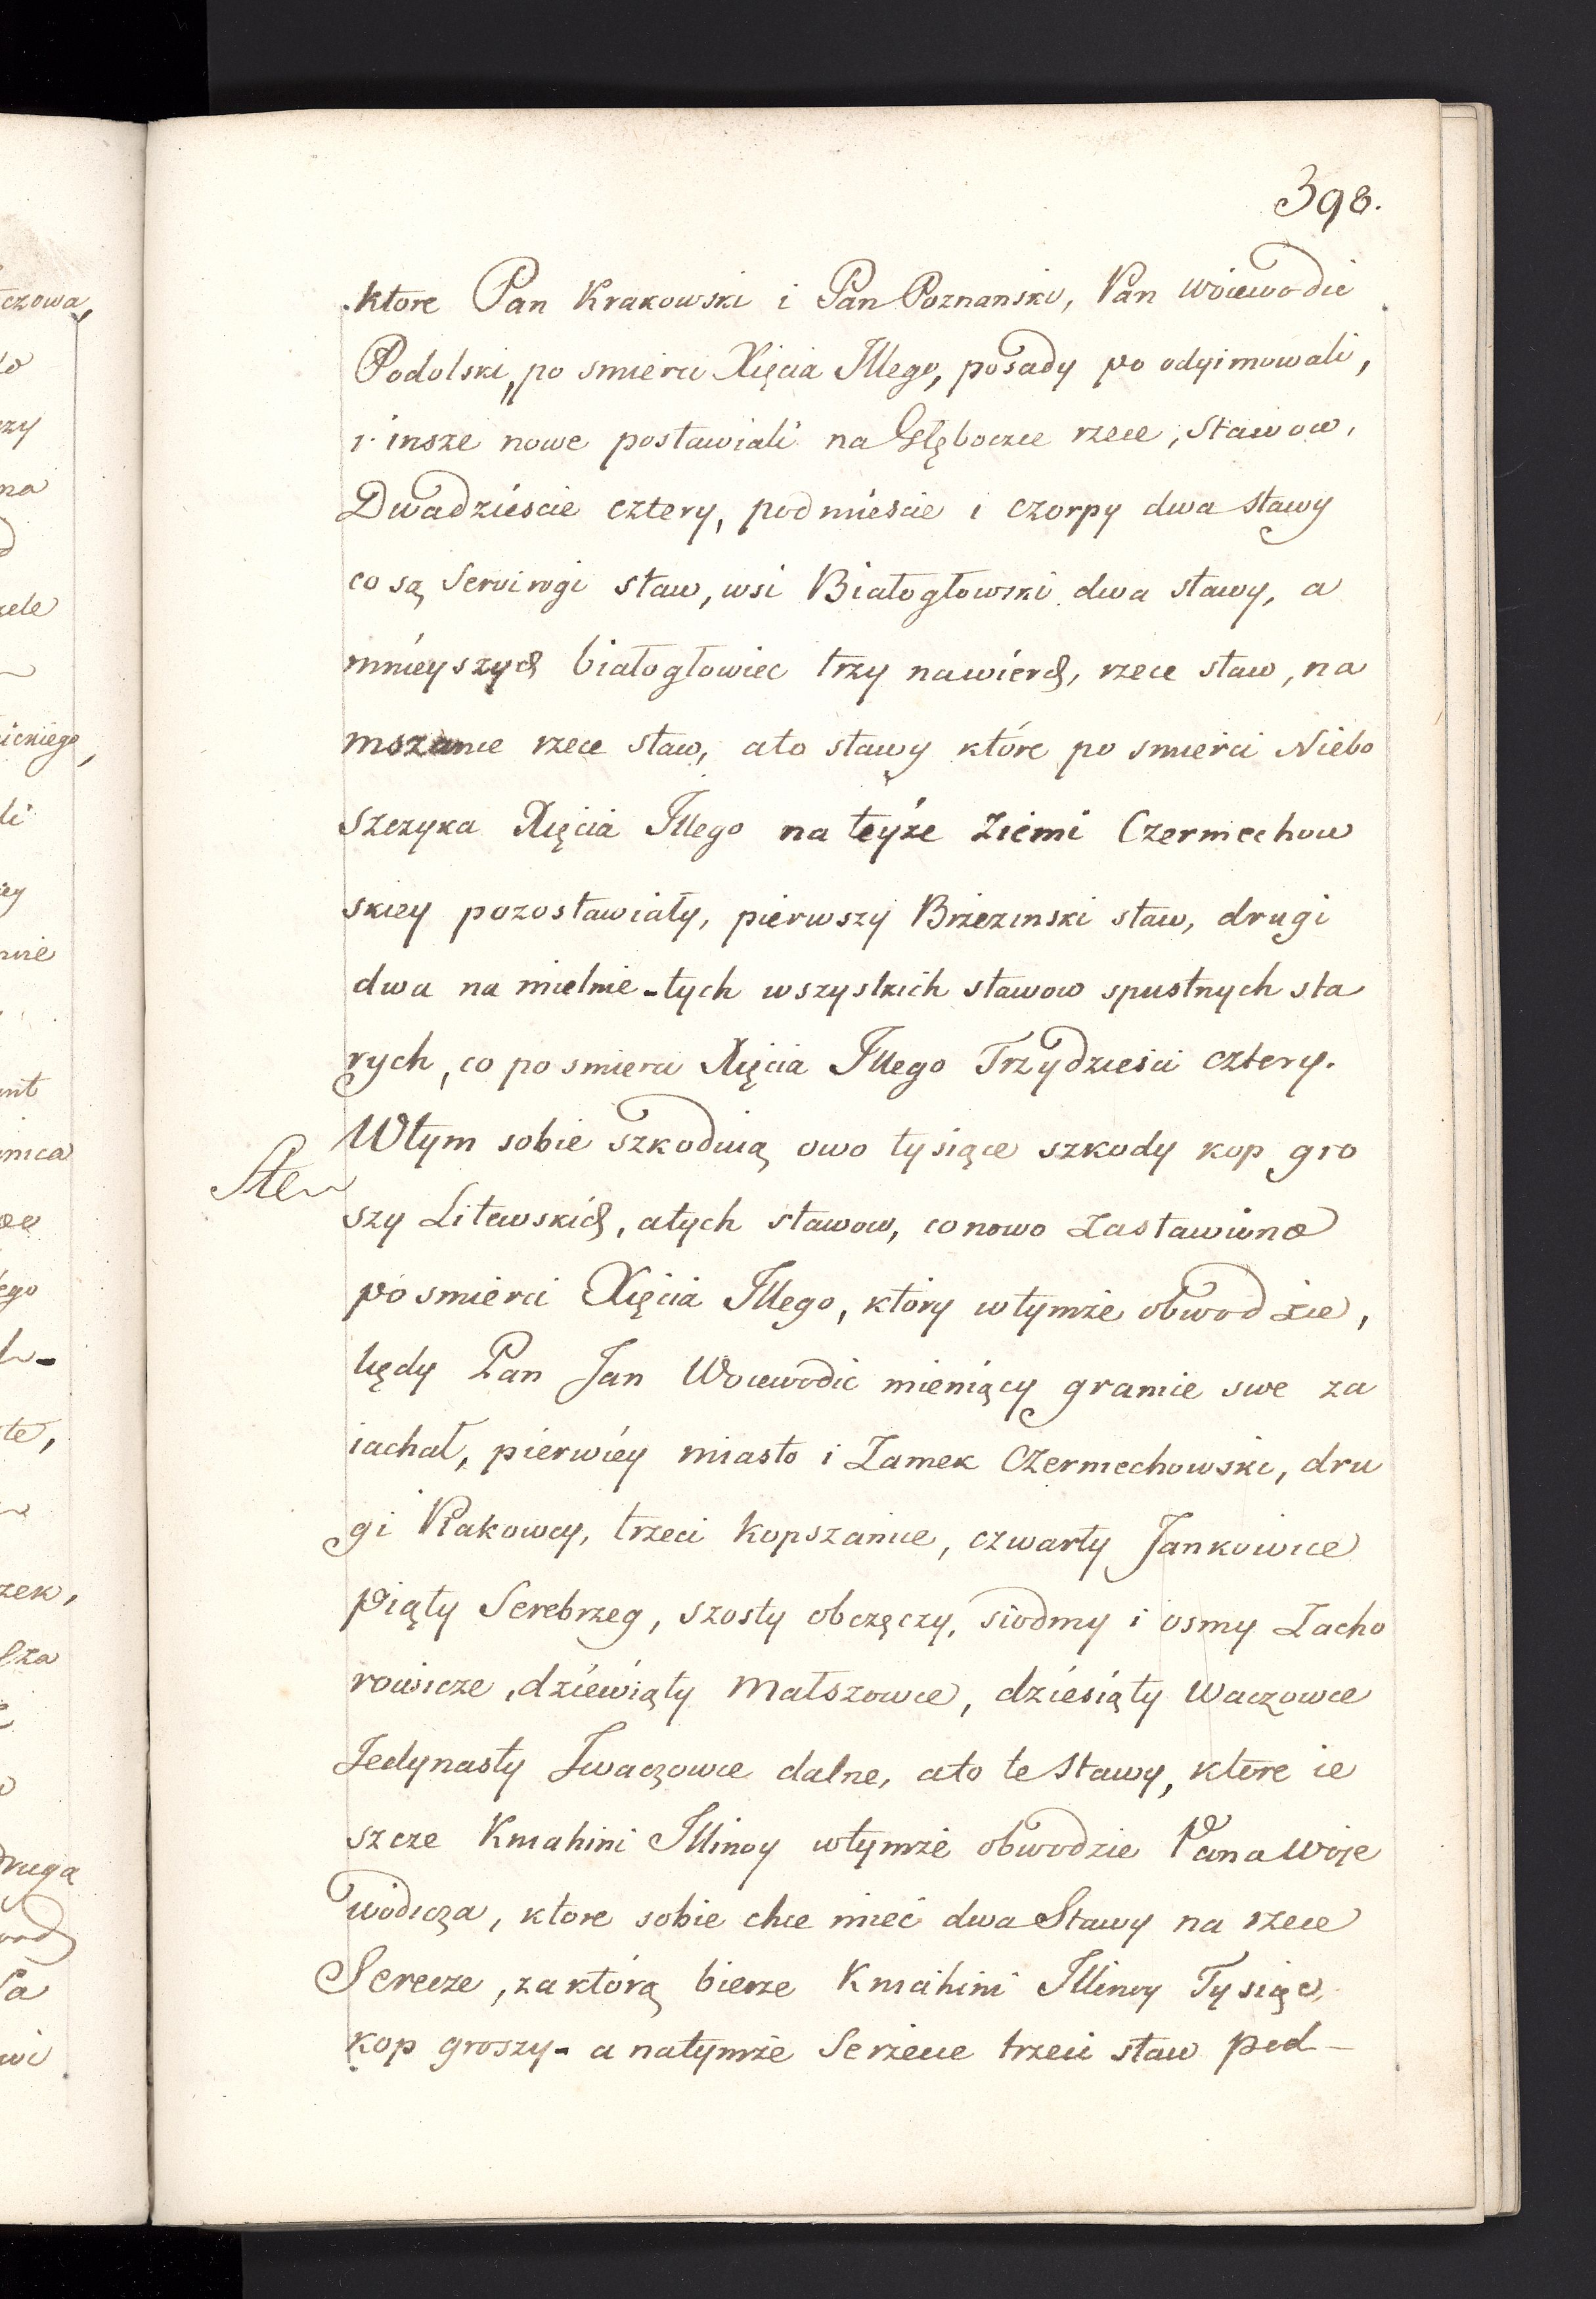 398.
ktore Pan Krakowski i Pan Poznanski, Pan Woiewodic
Podolski, po smierci Xięcia Illego, posady po odyimowali,
i insze nowe postawiali na Głęboczce rzece, stawow,
Dwadzieścia cztery, pod mieście i czorpy dwa stawy
co są Servirogi staw, wsi Białogłowski dwa stawy, a
mnieyszych białogłowiec trzy nawierch, rzece staw, na
mszanie rzece staw, ato stawy które po smierci Niebo
szczyka Xięcia Illego na teyże Ziemi Czerniechow
skiey pozostawiały, pierwszy Brzezinski staw, drugi
dwa na mielnie - tych wszystkich stawow spustnych sta
rych, co po smierci Xięcia Illego Trzydzieści cztery.
Wtym sobie szkodują owo tysiące szkody kop gro
szy Litewskich, atych stawow, co nowo zastawiono
po smierci Xięcia Illego, który wtymże obwodzie,
kędy Pan Jan Woiewodic mieniący granie swe za
iachał, pierwiey miasto i Zamek Czerniechowski, dru
gi Płakowcy, trzeci Kopszanice, czwarty Jankowice
piąty Serebrzeg, szosty obczęczy, siodmy i osmy Zacho
rowicze, dziewiąty Małszowce, dziesiąty Waczowce
Jedynasty Iwaczowce dalne, ato te stawy, ktore ie
szcze Kniahini Illinoy wtymże obwodzie Pana Woje
wodicza, ktore sobie chce mieć dwa Stawy na rzece
Serecze, za którą bierze Kniahini Illinoy Tysiąc
kop groszy - a natymże Serzecie trzeci staw pod -